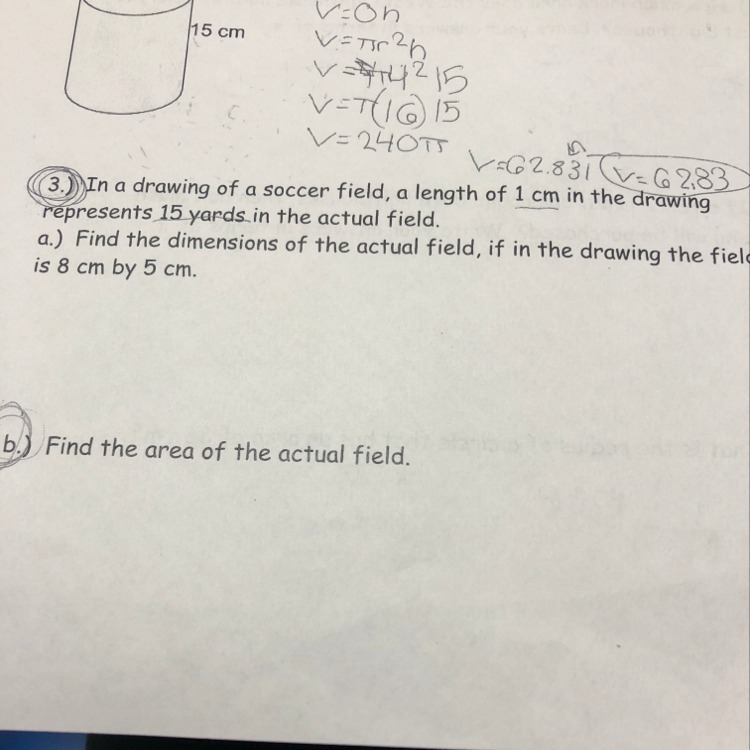 V=Bh
15 cm
V=πr²h
V=π4²15
V=π(16)15
V=240π
V=62.831 V=62.83
3.) In a drawing of a soccer field, a length of 1 cm in the drawing
represents 15 yards in the actual field.
a.) Find the dimensions of the actual field, if in the drawing the field
is 8 cm by 5 cm.
b.) Find the area of the actual field.